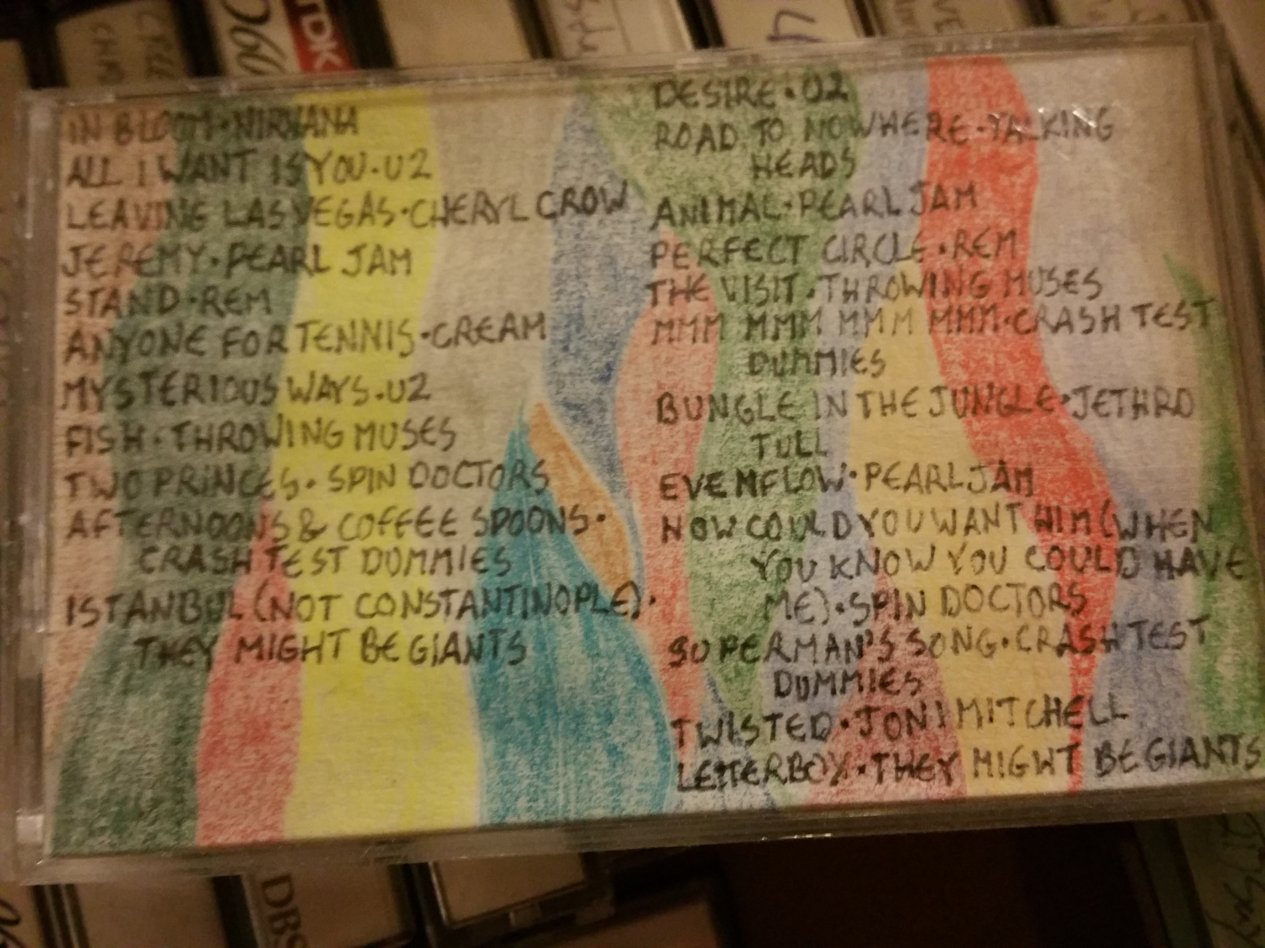 IN BLOOM • NIRVANA
ALL I WANT IS YOU • U2
LEAVING LAS VEGAS • CHERYL CROW
JEREMY • PEARL JAM
STAND • REM
ANYONE FOR TENNIS • CREAM
MYSTERIOUS WAYS • U2
FISH • THROWING MUSES
TWO PRINCES • SPIN DOCTORS
AFTERNOONS & COFFEE SPOONS •
CRASH TEST DUMMIES
ISTANBUL (NOT CONSTANTINOPLE) •
THEY MIGHT BE GIANTS
DESIRE • U2
ROAD TO NOWHERE • TALKING
HEADS
ANIMAL • PEARL JAM
PERFECT CIRCLE • REM
THE VISIT • THROWING MUSES
MMM MMM MMM MMM • CRASH TEST
DUMMIES
BUNGLE IN THE JUNGLE • JETHRO
TULL
EVENFLOW • PEARL JAM
HOW COULD YOU WANT HIM (WHEN
YOU KNOW YOU COULD HAVE
ME) • SPIN DOCTORS
SUPERMAN'S SONG • CRASH TEST
DUMMIES
TWISTED • JONI MITCHELL
LETTERBOX • THEY MIGHT BE GIANTS
TDK
DBS